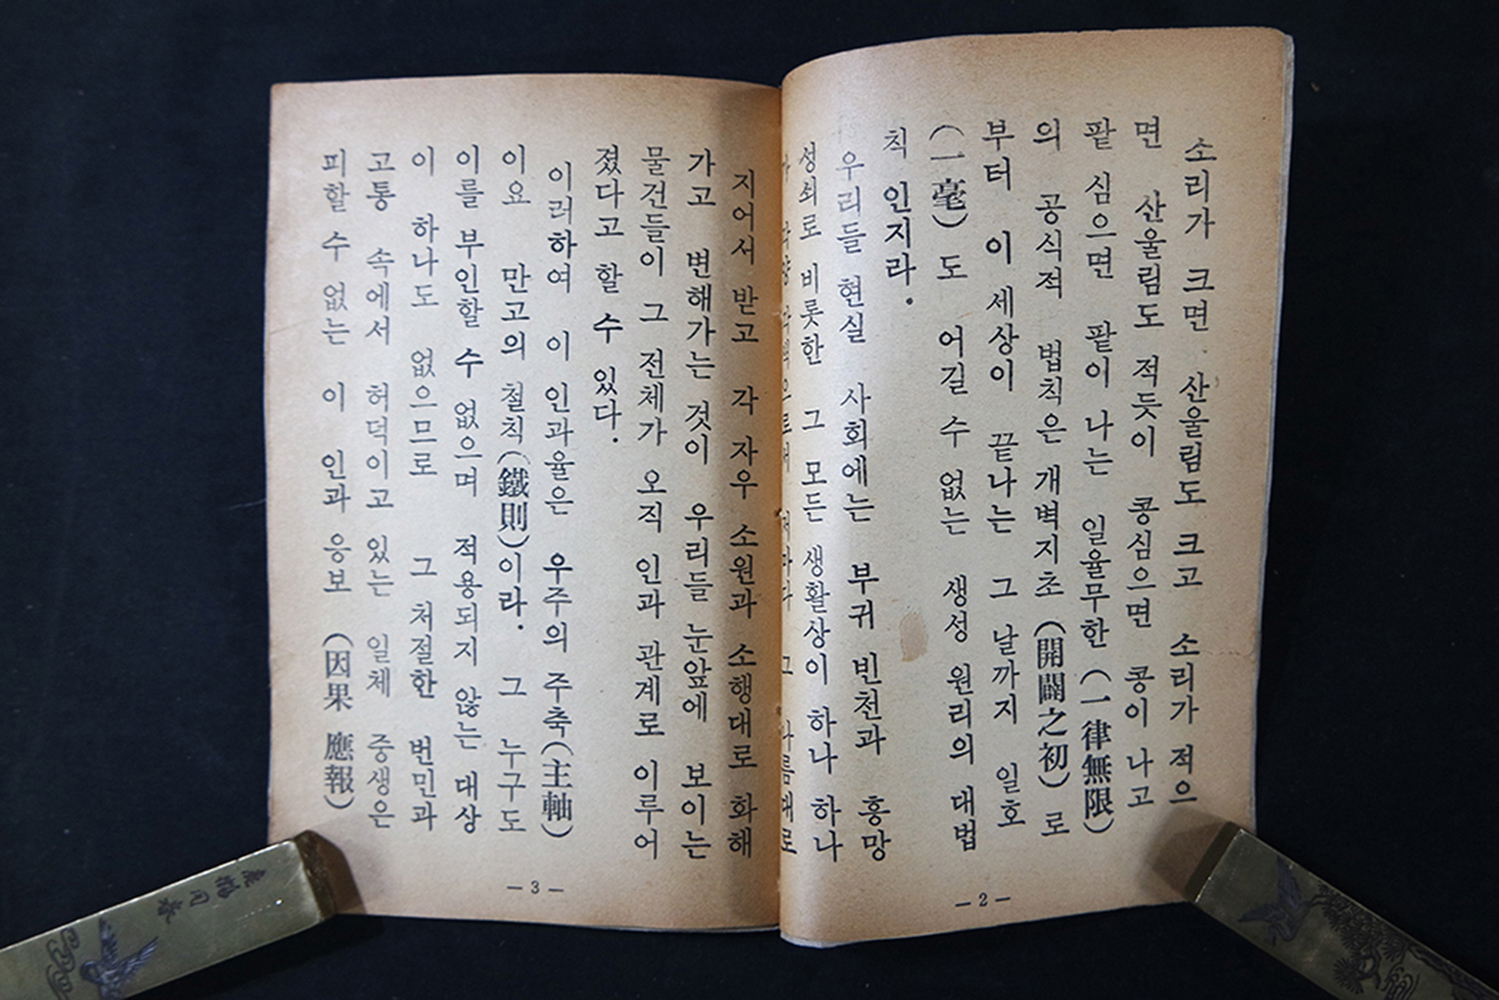 소리가 크면 산울림도 크고 소리가 적으
면 산울림도 적듯이 콩심으면 콩이 나고
팥 심으면 팥이 나는 일율무한 (一律無限)
의 공식적 법칙은 개벽지초 (開闢之初) 로
부터 이 세상이 끝나는 그 날까지 일호
(一毫) 도 어길 수 없는 생성 원리의 대법
칙 인지라.
우리들 현실 사회에는 부귀 빈천과 흥망
성쇠로 비롯한 그 모든 생활상이 하나 하나
그 대로
— 2 —
지어서 받고 각 자우 소원과 소행대로 화해
가고 변해가는 것이 우리들 눈앞에 보이는
물건들이 그 전체가 오직 인과 관계로 이루어
졌다고 할 수 있다.
이러하여 이 인과율은 우주의 주축(主軸)
이요 만고의 철칙(鐵則)이라. 그 누구도
이를 부인할 수 없으며 적용되지 않는 대상
이 하나도 없으므로 그 처절한 번민과
고통 속에서 허덕이고 있는 일체 중생은
피할 수 없는 이 인과 응보 (因果 應報)
— 3 —